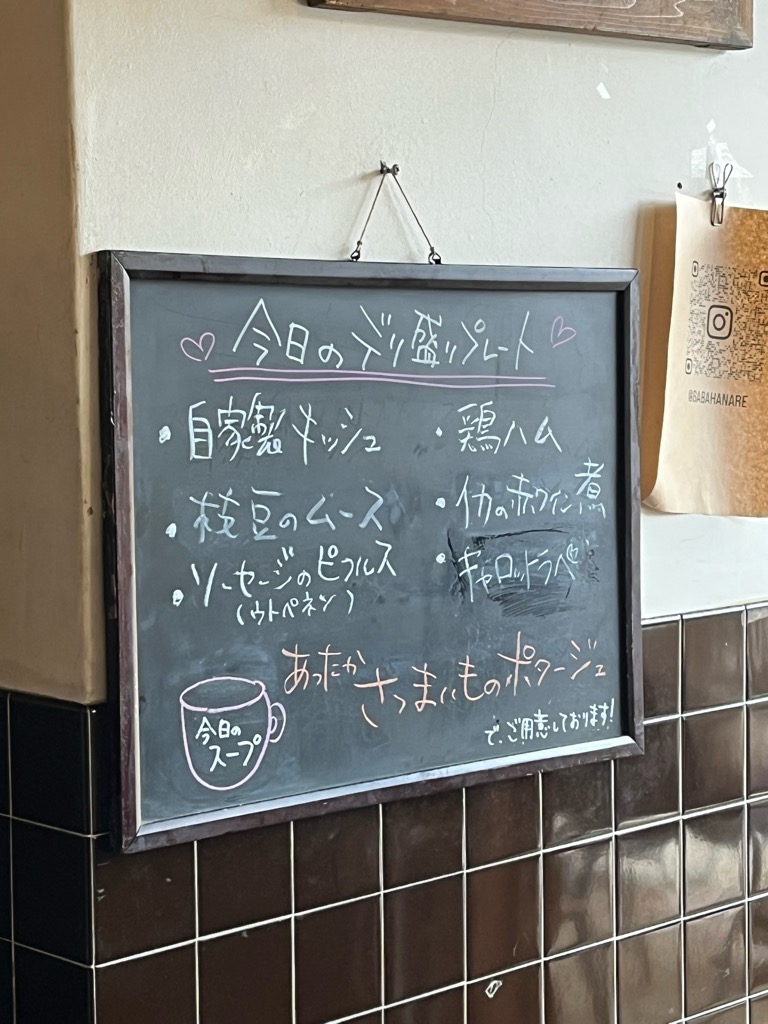 ♡ 今日のデリ盛りプレート ♡
・自家製キッシュ
・枝豆のムース
・ソーセージのピクルス
(ウトペネツ)
・鶏ハム
・イカの赤ワイン煮
・キャロットラペ
あったか さつまいものポタージュ
で、ご用意しております!
今日の
スープ
@SABAHANARE